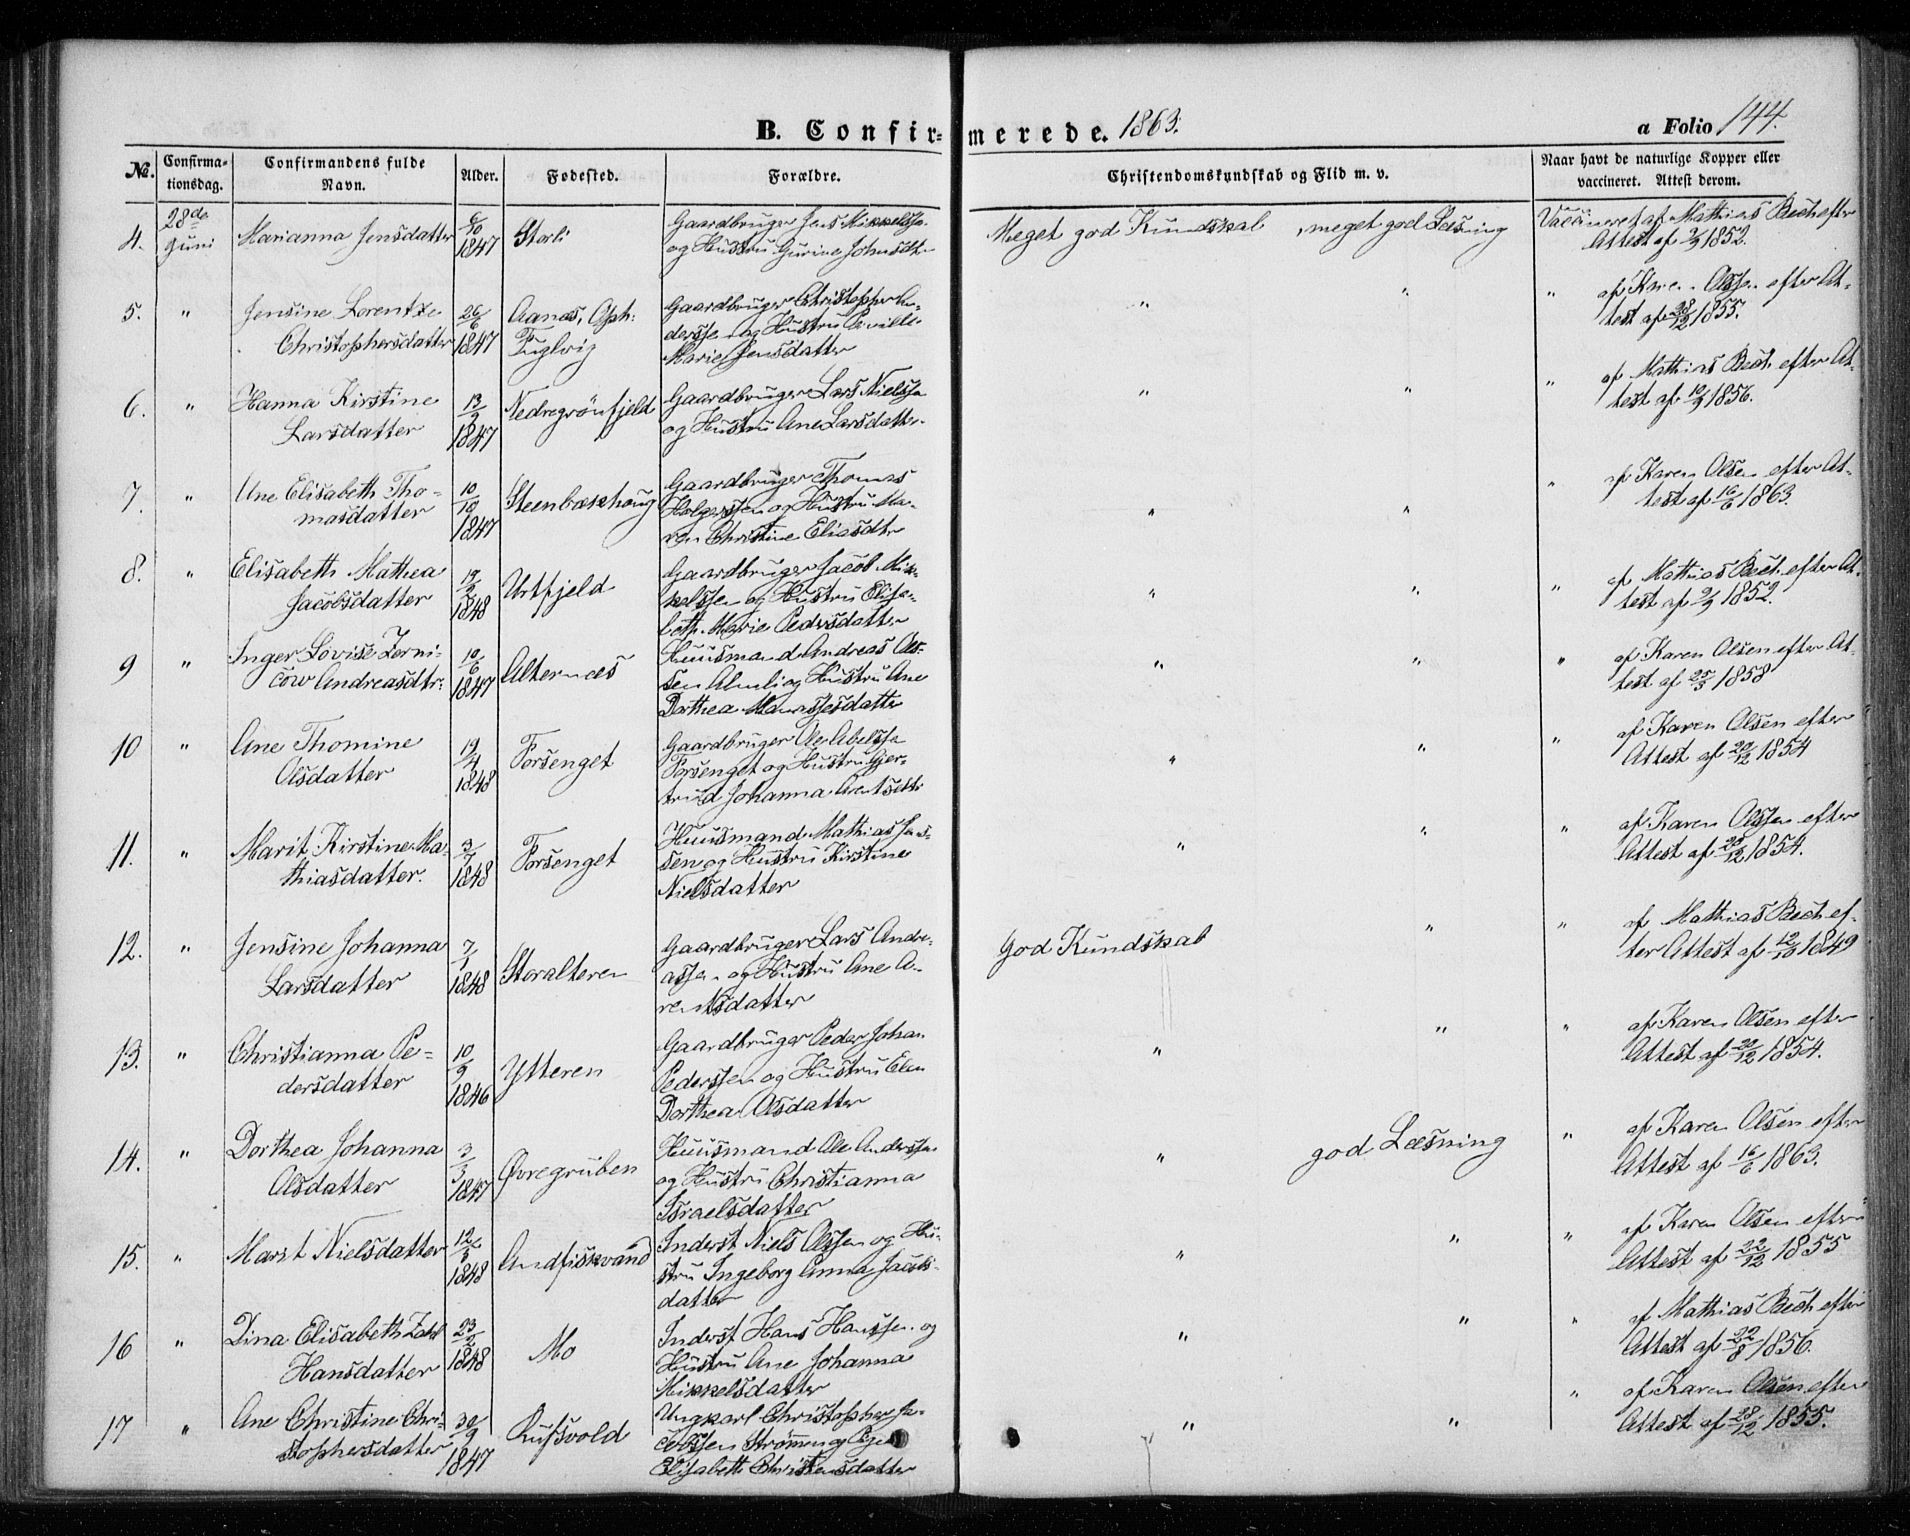 B. Confirmerede. 1863. a Folio 144.
No. Confirmationsdag. Confirmandens fulde Navn. Alder. Fødested. Forældre. Christendomskundskab og Flid m. v. Naar havt de naturlige Kopper eller vaccineret. Attest derom.
4. 28de Juni Marianna Jensdatter 6/10 1847 Storli Gaardbruger Jens Mikkelssen og Hustru Gurine Johnsdtr Meget god Kundskab, meget god Læsning Vaccineret af Mathias Bech efter Attest af 2/9 1852.
5. " Jensine Lorentze Christophersdatter 26/6 1847 Aanæs, Oph: Fuglvig Gaardbruger Christopher Anderssen og Hustru Pernille Marie Jensdatter " " " af Karen Olssen efter Attest af 28/12 1855.
6. " Hanna Kirstine Larsdatter 13/9 1847 Nedregrönfjeld Gaardbruger Lars Nielssen og Hustru Ane Larsdatter " " " af Mathias Bech efter Attest af 10/9 1856.
7. " Ane Elisabeth Thomasdatter 10/10 1847 Steenbækhaug Gaardbruger Thomas Holgerssen og Hustru Maren Christine Eliasdtr " " " af Karen Olsen efter Attest af 16/6 1863.
8. " Elisabeth Mathea Jacobsdatter 19/2 1848 Urtfjeld Gaardbruger Jacob Mikkelssen og Hustru Elisabeth Marie Pedersdatter " " " af Mathias Bech efter Attest af 2/9 1852.
9 " Inger Lovise Zernicow Andreasdtr: 10/6 1847 Alternæs Huusmand Andreas Olsen Almli og Hustru Ane Dorthea Manassesdatter " " " af Karen Olsen efter Attest af 25/5 1858
10 " Ane Thomine Olsdatter 19/4 1848 Forsenget Gaardbruger Ole Abelssen Forsenget og Hustru Gjertrud Johanna Arentsdtr " " " af Karen Olsen efter Attest af 20/12 1854
11. " Marit Kirstine Mathiasdatter. 3/7 1848 Forsenget Huusmand Mathias Jensen og Hustru Kirstine Nielsdatter " " " af Karen Olssen efter Attest af 20/12 1854.
12. " Jensine Johanna Larsdatter 7/1 1848 Storalteren Gaardbruger Lars Andreassen og Hustru Ane Arentsdatter God Kundskab " " af Mathias Bech efter Attest af 12/10 1849
13. " Christianna Pedersdatter 10/9 1846 Ytteren Gaardbruger Peder Johan Pederssen og Hustru Elen Dorthea Olsdatter " " " af Karen Olsen efter Attest af 20/12 1854.
14. " Dorthea Johanna Olsdatter 3/3 1847 Øvregruben Huusmand Ole Anderssen og Hustru Christianna Israelsdatter " god Læsning " af Karen Olsen efter Attest af 16/6 1863.
15. " Marit Nielsdatter 12/3 1848 Andfiskvand Inderst Niels Olssen og Hustru Ingeborg Anna Jacobsdatter " " " af Karen Olsen efter Attest af 22/12 1855
16 " Dina Elisabeth Zahl Hansdatter 23/2 1848 Mo Inderst Hans Hanssen og Hustru Ane Johanna Mikkelsdatter " " " af Mathias Bech efter Attest af 22/8 1856.
17 " Ane Christine Christophersdatter 30/9 1847 Rufsvold Ungkarl Christopher Jacobssen Strømmen og Pigen Elisabeth Christensdatter " " " af Karen Olsen efter Attest af 28/12 1855.